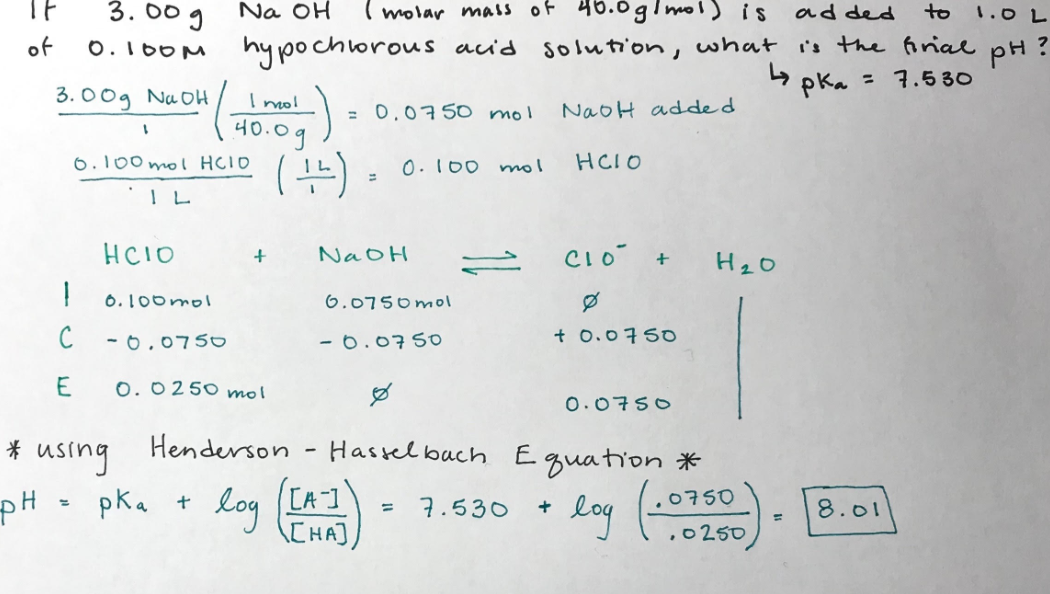 If 3.00g NaOH (molar mass of 40.0g/mol) is added to 1.0 L
of 0.100M hypochlorous acid solution, what is the final pH?
↳ pKa = 7.530
3.00g NaOH / 1 (1 mol / 40.0g) = 0.0750 mol NaOH added
0.100 mol HClO / 1 L (1L / 1) = 0.100 mol HClO
HClO + NaOH ⇌ ClO⁻ + H₂O
I 0.100mol 0.0750mol ∅
C -0.0750 -0.0750 +0.0750
E 0.0250 mol ∅ 0.0750
* using Henderson-Hasselbach Equation *
pH = pKa + log ([A⁻] / [HA]) = 7.530 + log (.0750 / .0250) = 8.01